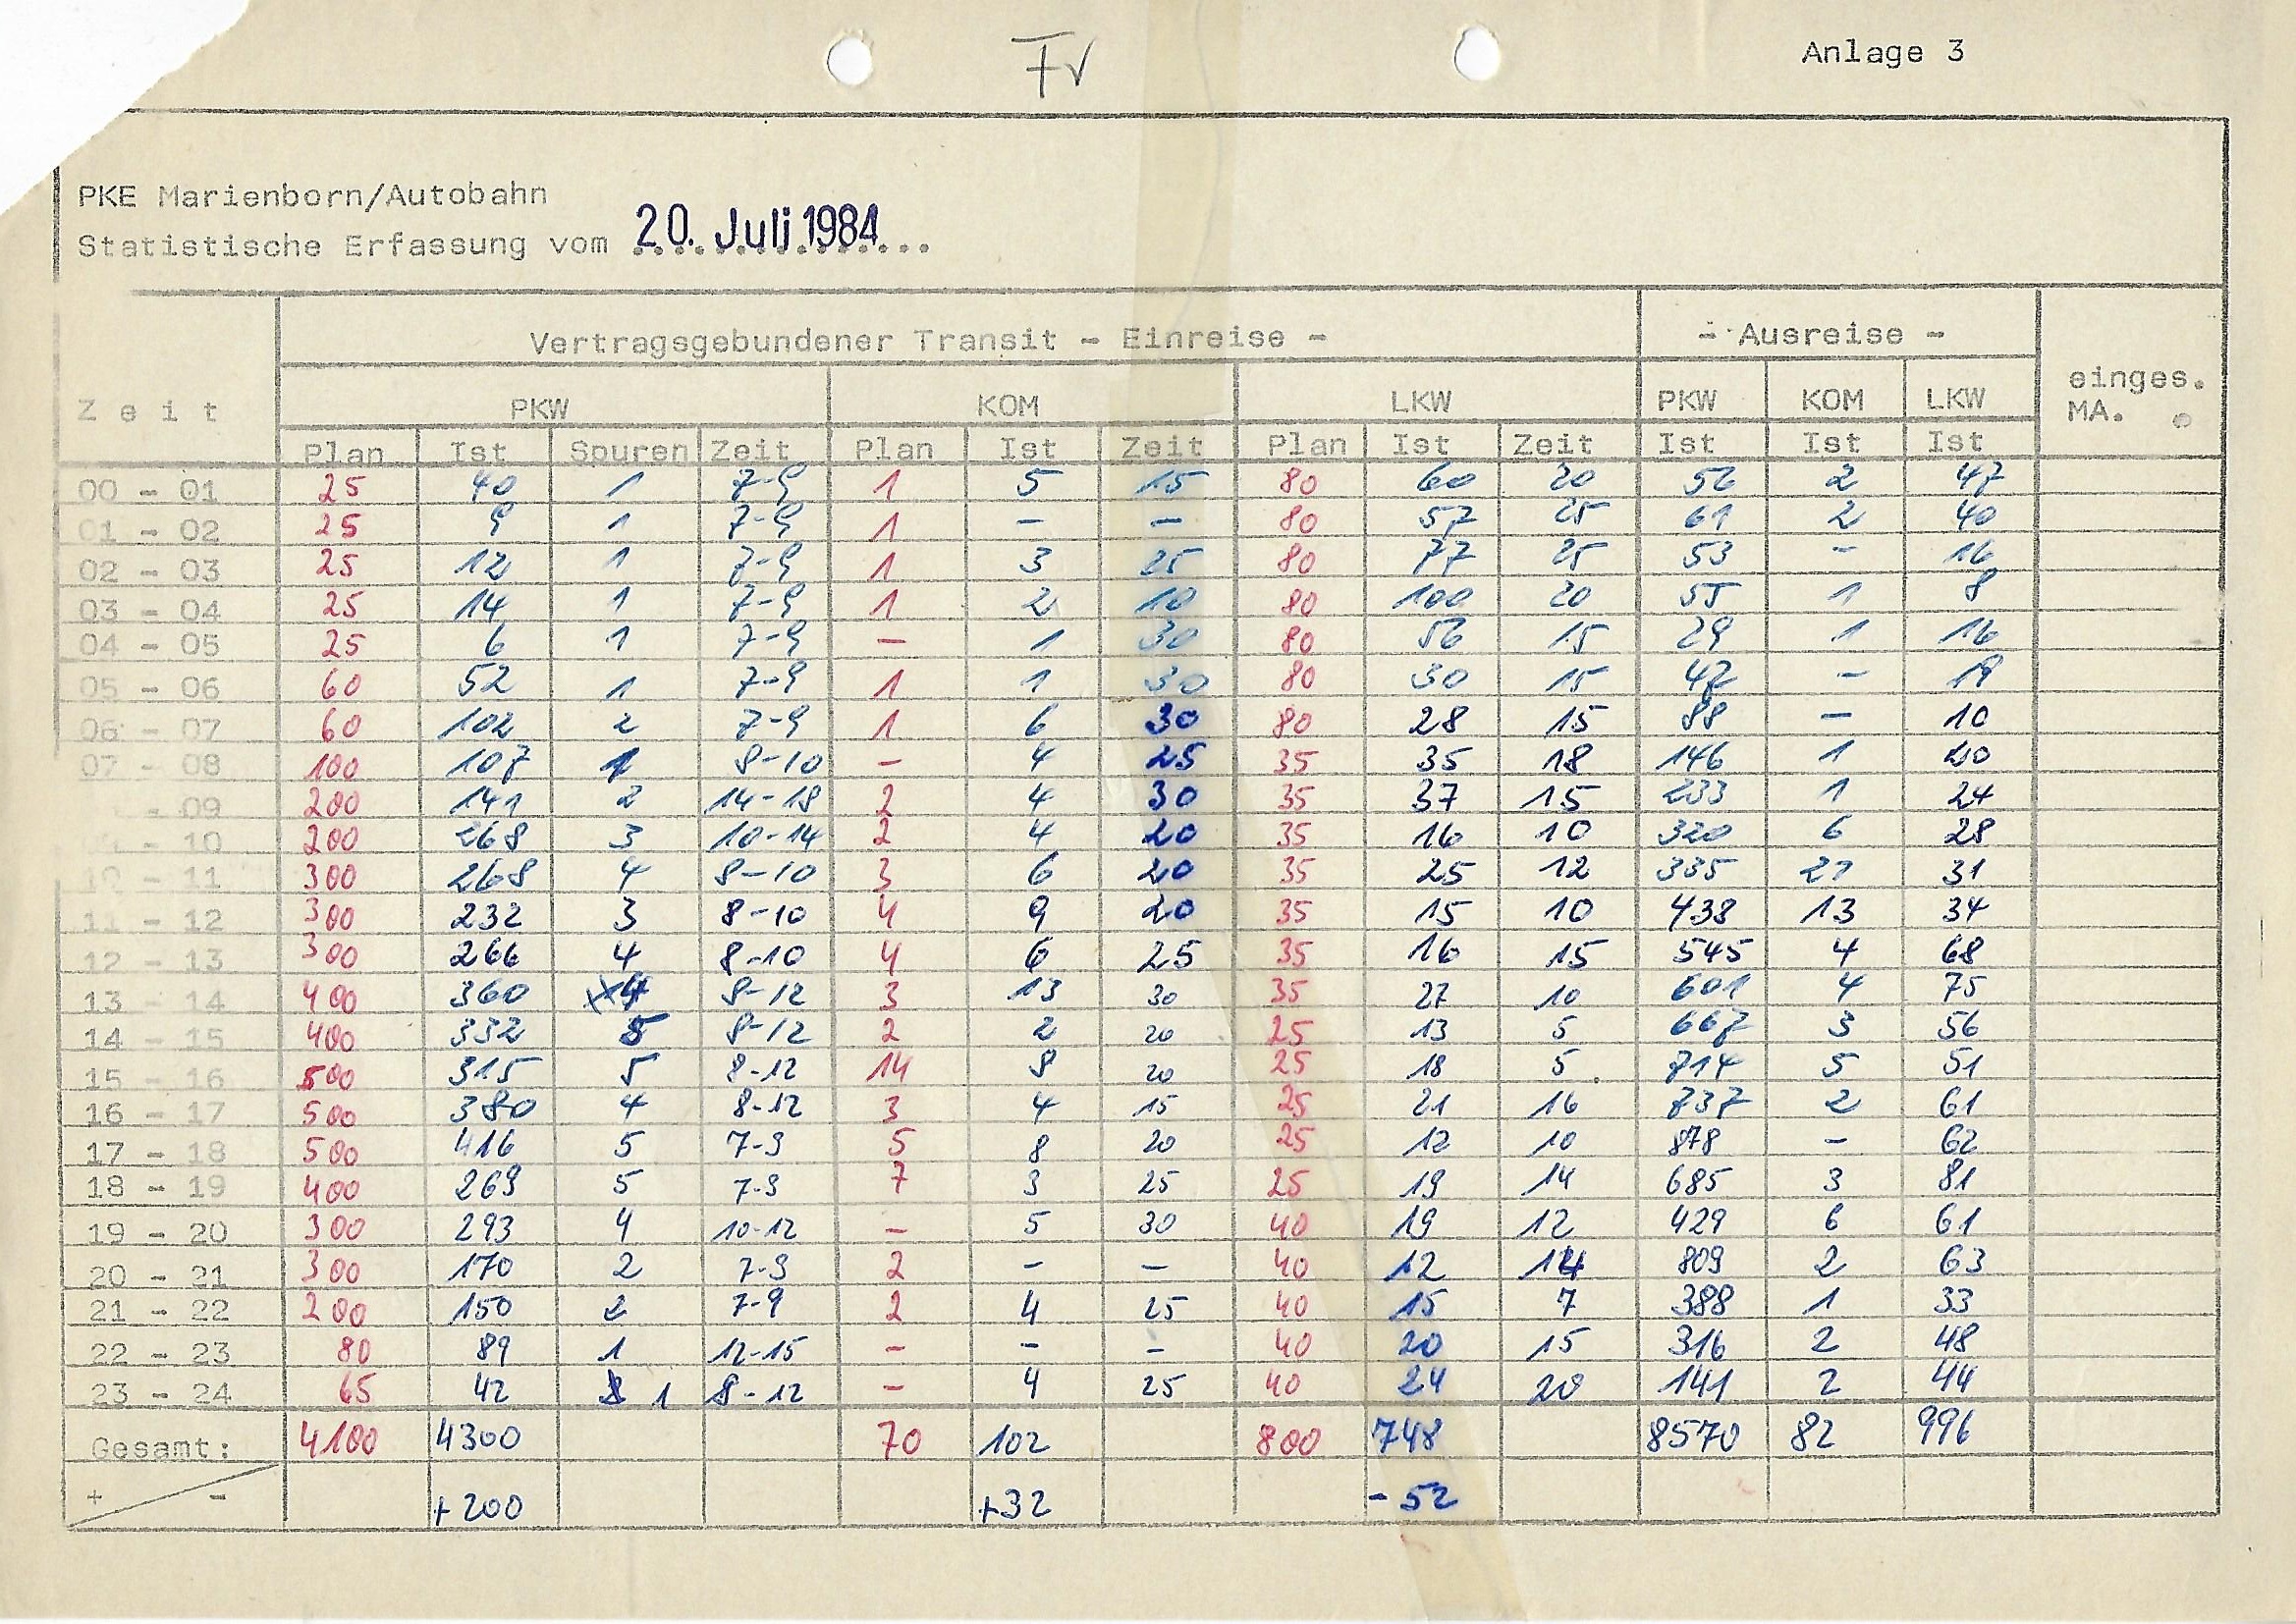 Fr
Anlage 3
PKE Marienborn/Autobahn
Statistische Erfassung vom 20. Juli 1984
Vertragsgebundener Transit - Einreise - - Ausreise -
Zeit PKW KOM LKW PKW KOM LKW einges. MA.
Plan Ist Spuren Zeit Plan Ist Zeit Plan Ist Zeit Ist Ist Ist
00 - 01 25 40 1 7-9 1 5 15 80 60 20 56 2 47
01 - 02 25 9 1 7-9 1 - - 80 57 25 61 2 40
02 - 03 25 12 1 7-9 1 3 25 80 77 25 53 - 16
03 - 04 25 14 1 7-9 1 2 10 80 100 20 55 1 8
04 - 05 25 6 1 7-9 - 1 30 80 56 15 29 1 16
05 - 06 60 52 1 7-9 1 1 30 80 30 15 47 - 19
06 - 07 60 102 2 7-9 1 6 30 80 28 15 88 - 10
07 - 08 100 107 1 8-10 - 4 25 35 35 18 146 1 20
- 09 200 141 2 14-18 2 4 30 35 37 15 233 1 24
- 10 200 268 3 10-14 2 4 20 35 16 10 320 6 28
10 - 11 300 268 4 8-10 3 6 20 35 25 12 335 21 31
11 - 12 300 232 3 8-10 4 9 20 35 15 10 438 13 34
12 - 13 300 266 4 8-10 4 6 25 35 16 15 545 4 68
13 - 14 400 360 4 8-12 3 13 30 35 27 10 601 4 75
14 - 15 400 332 5 8-12 2 2 20 25 13 5 667 3 56
15 - 16 500 315 5 8-12 14 8 20 25 18 5 714 5 51
16 - 17 500 380 4 8-12 3 4 15 25 21 16 737 2 61
17 - 18 500 416 5 7-9 5 8 20 25 12 10 878 - 62
18 - 19 400 269 5 7-9 7 3 25 25 19 14 685 3 81
19 - 20 300 293 4 10-12 - 5 30 40 19 12 429 6 61
20 - 21 300 170 2 7-9 2 - - 40 12 14 809 2 63
21 - 22 200 150 2 7-9 2 4 25 40 15 7 388 1 33
22 - 23 80 89 1 12-15 - - - 40 20 15 316 2 48
23 - 24 65 42 1 8-12 - 4 25 40 24 20 141 2 44
Gesamt: 4100 4300 70 102 800 748 8570 82 996
+ - +200 +32 -52